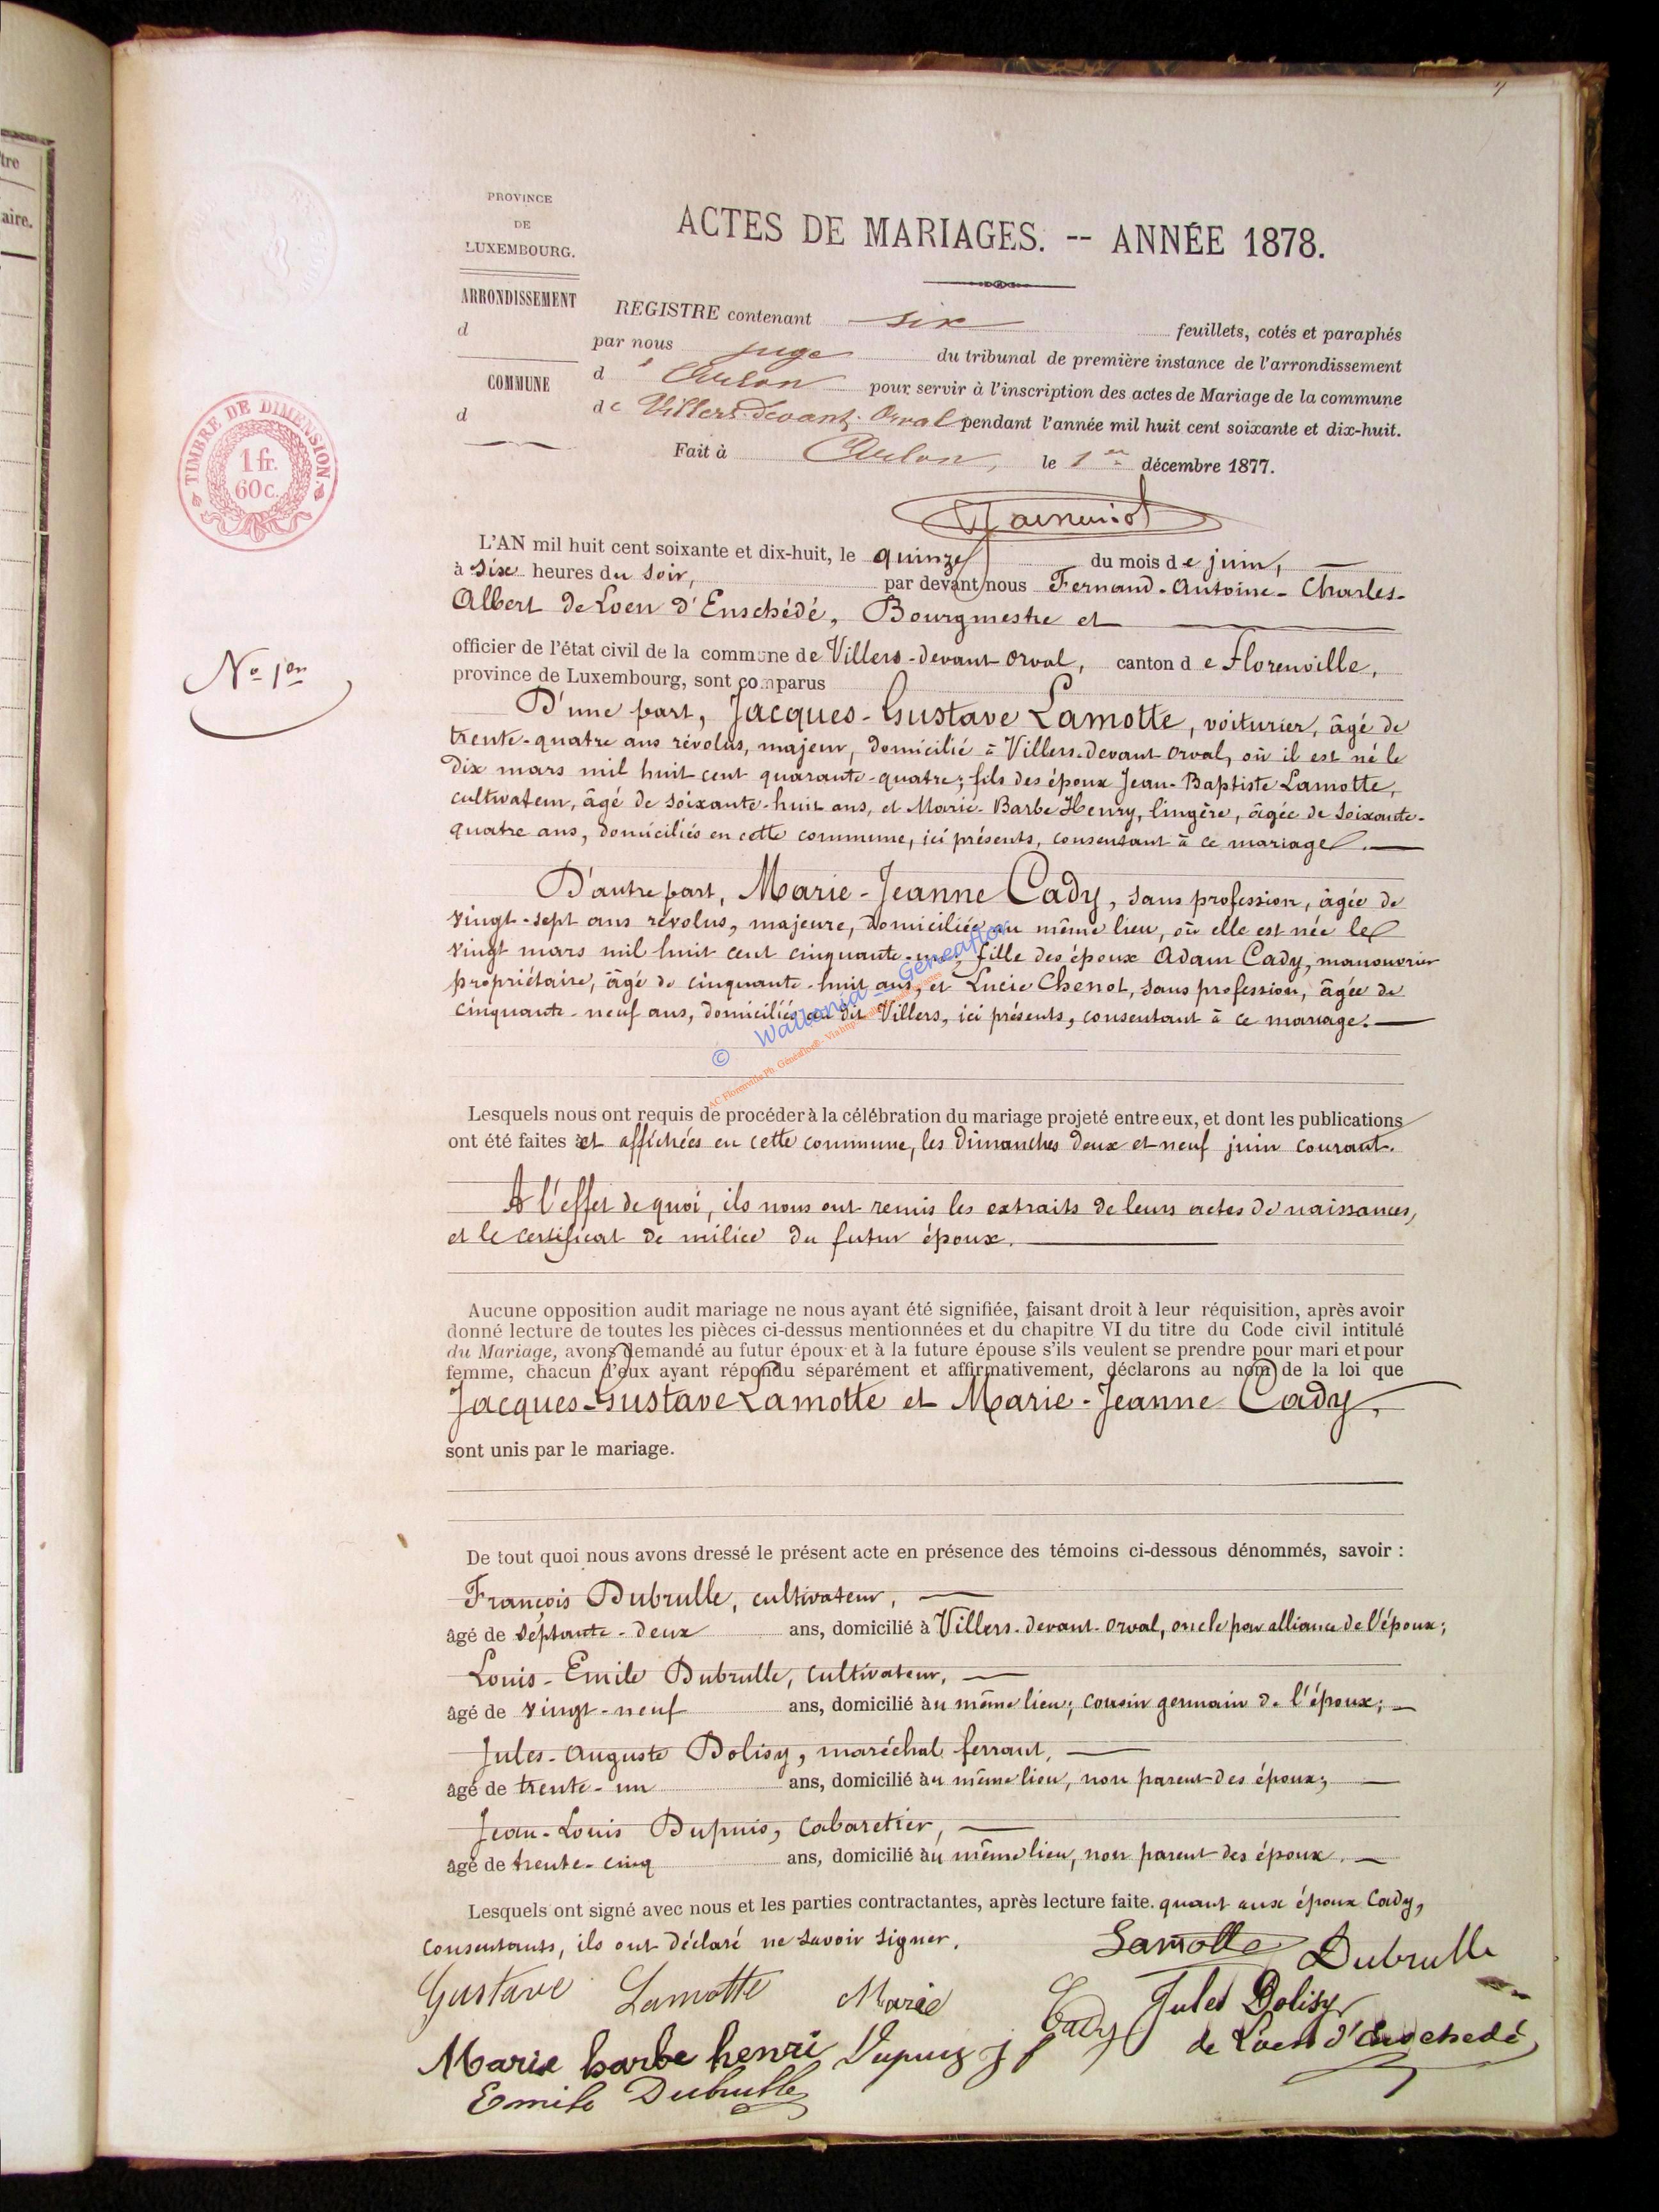 tre
aire.
PROVINCE
DE
LUXEMBOURG.
ARRONDISSEMENT
d
COMMUNE
d
ACTES DE MARIAGES. -- ANNÉE 1878.
REGISTRE contenant six feuillets, cotés et paraphés
par nous juge du tribunal de première instance de l'arrondissement
d'Arlon pour servir à l'inscription des actes de Mariage de la commune
de Villers-devant-Orval pendant l'année mil huit cent soixante et dix-huit.
Fait à Arlon, le 1er décembre 1877.
TIMBRE DE DIMENSION.
1 fr.
60 c.
L'AN mil huit cent soixante et dix-huit, le quinze du mois de juin,
à six heures du soir, par devant nous Fernand-Antoine-Charles-
Albert de Loen d'Enschédé, Bourgmestre et
officier de l'état civil de la commune de Villers-devant-Orval, canton de Florenville,
province de Luxembourg, sont comparus
No 1er
D'une part, Jacques-Gustave Lamotte, voiturier, âgé de
trente-quatre ans révolus, majeur, domicilié à Villers-devant-Orval, où il est né le
dix mars mil huit cent quarante-quatre; fils des époux Jean-Baptiste Lamotte,
cultivateur, âgé de soixante-huit ans, et Marie-Barbe Henry, lingère, âgée de soixante-
quatre ans, domiciliés en cette commune, ici présents, consentant à ce mariage.
D'autre part, Marie-Jeanne Cady, sans profession, âgée de
vingt-sept ans révolus, majeure, domiciliée au même lieu, où elle est née le
vingt mars mil huit cent cinquante-un, fille des époux Adam Cady, manouvrier
propriétaire, âgé de cinquante-huit ans, et Lucie Chenot, sans profession, âgée de
cinquante-neuf ans, domiciliés au dit Villers, ici présents, consentant à ce mariage.
© Wallonia - Geneaflor
Lesquels nous ont requis de procéder à la célébration du mariage projeté entre eux, et dont les publications
ont été faites et affichées en cette commune, les dimanches deux et neuf juin courant.
A l'effet de quoi, ils nous ont remis les extraits de leurs actes de naissances,
et le certificat de milice du futur époux.
Aucune opposition audit mariage ne nous ayant été signifiée, faisant droit à leur réquisition, après avoir
donné lecture de toutes les pièces ci-dessus mentionnées et du chapitre VI du titre du Code civil intitulé
du Mariage, avons demandé au futur époux et à la future épouse s'ils veulent se prendre pour mari et pour
femme, chacun d'eux ayant répondu séparément et affirmativement, déclarons au nom de la loi que
Jacques-Gustave Lamotte et Marie-Jeanne Cady,
sont unis par le mariage.
De tout quoi nous avons dressé le présent acte en présence des témoins ci-dessous dénommés, savoir :
François Dubrulle, cultivateur,
âgé de septante-deux ans, domicilié à Villers-devant-Orval, oncle par alliance de l'époux;
Louis-Emile Dubrulle, cultivateur,
âgé de vingt-neuf ans, domicilié au même lieu; cousin germain de l'époux;
Jules-Auguste Dolisy, maréchal ferrant,
âgé de trente-un ans, domicilié au même lieu, non parent des époux;
Jean-Louis Dupuis, cabaretier,
âgé de trente-cinq ans, domicilié au même lieu, non parent des époux.
Lesquels ont signé avec nous et les parties contractantes, après lecture faite. quant aux époux Cady,
consentants, ils ont déclaré ne savoir signer.
Lamotte Dubrulle
Gustave Lamotte Marie Cady Jules Dolisy
Marie barbe henri Dupuis J L de Loen d'Enschedé
Emile Dubrulle